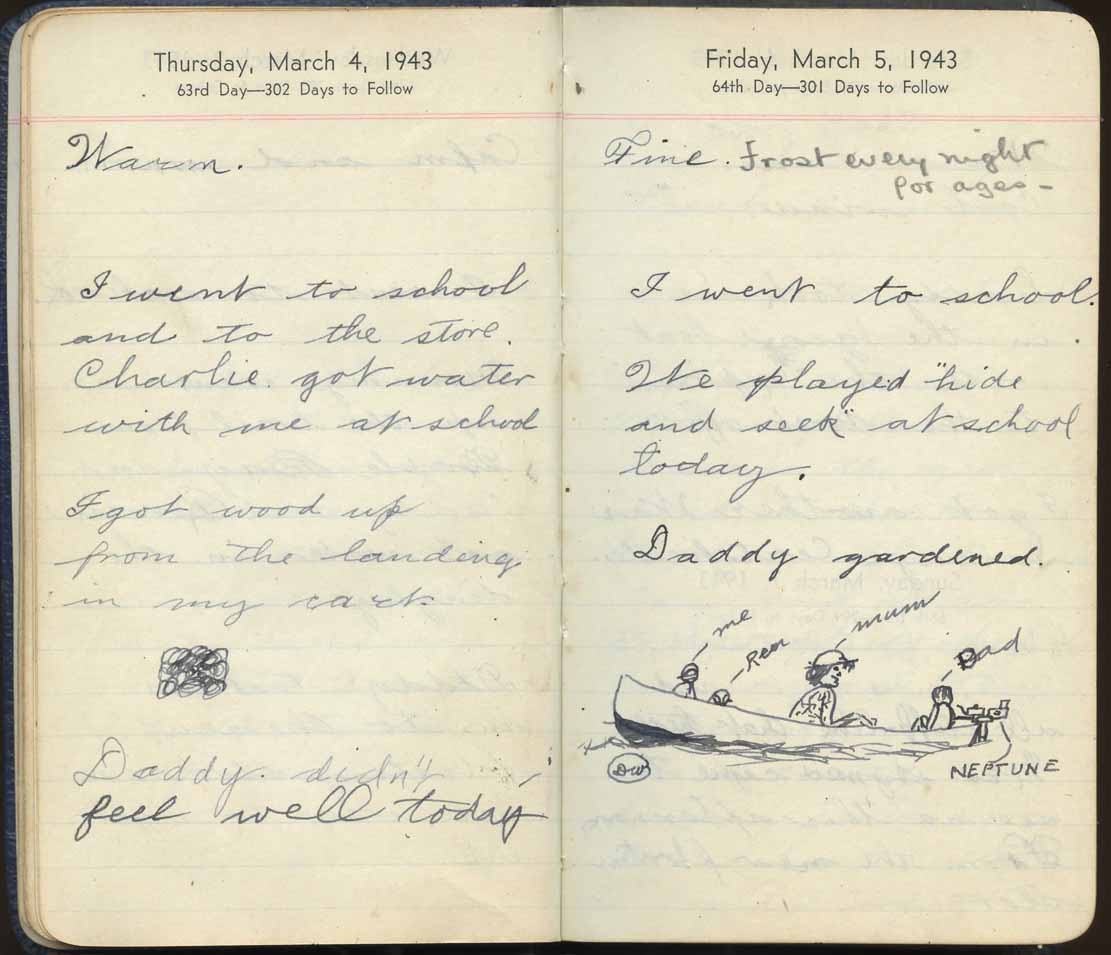 Thursday, March 4, 1943
63rd Day—302 Days to Follow
Warm.
I went to school
and to the store.
Charlie. got water
with me at school
I got wood up
from the landing
in my cart.
Daddy. didn't
feel well today
Friday, March 5, 1943
64th Day—301 Days to Follow
Fine. Frost every night
for ages -
I went to school.
We played "hide
and seek" at school
today.
Daddy gardened.
me
Ren
mum
Dad
DW
NEPTUNE